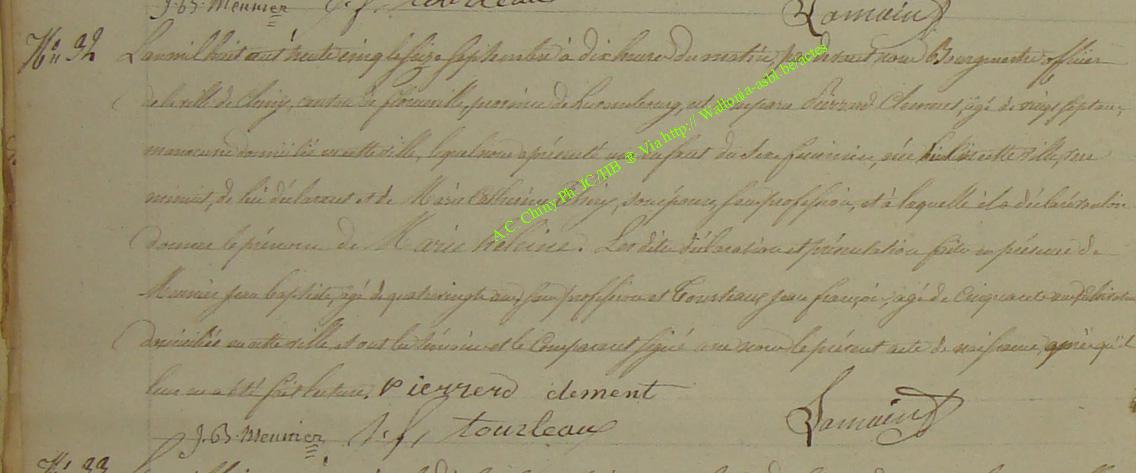 J.B. Meunier J. f. tourleau Lamain
No 32 L'an mil huit cent trente cinq le seize septembre à dix heures du matin, pardevant nous Bourgmestre officier
de la ville de Chiny, canton de florenville, province de Luxembourg, est comparu Pierrard Clement, agé de vingt sept ans,
manoeuvre domicilié en cette ville, lequel nous a présenté un enfant du sexe feminin, née en cette ville,
de lui déclarant et de Marie Catherine son épouse, sans profession, et à laquelle il a déclaré vouloir
donner le prénom de Marie . Les dites déclaration et présentation faite en présence de
Meunier jean baptiste, agé de quatre vingts ans, sans profession et Tourleaux jean françois, agé de Cinquante ans
domiciliés en cette ville, et ont les témoins et le Comparant signé avec nous le présent acte de naissance, après qu'il
leur en a été fait lecture. Pierrerd clement
J.B. Meunier J. f. tourleau Lamain
No 33
A.C. Chiny Ph JC/HB ® Via http:// Wallonia-asbl.be/actes